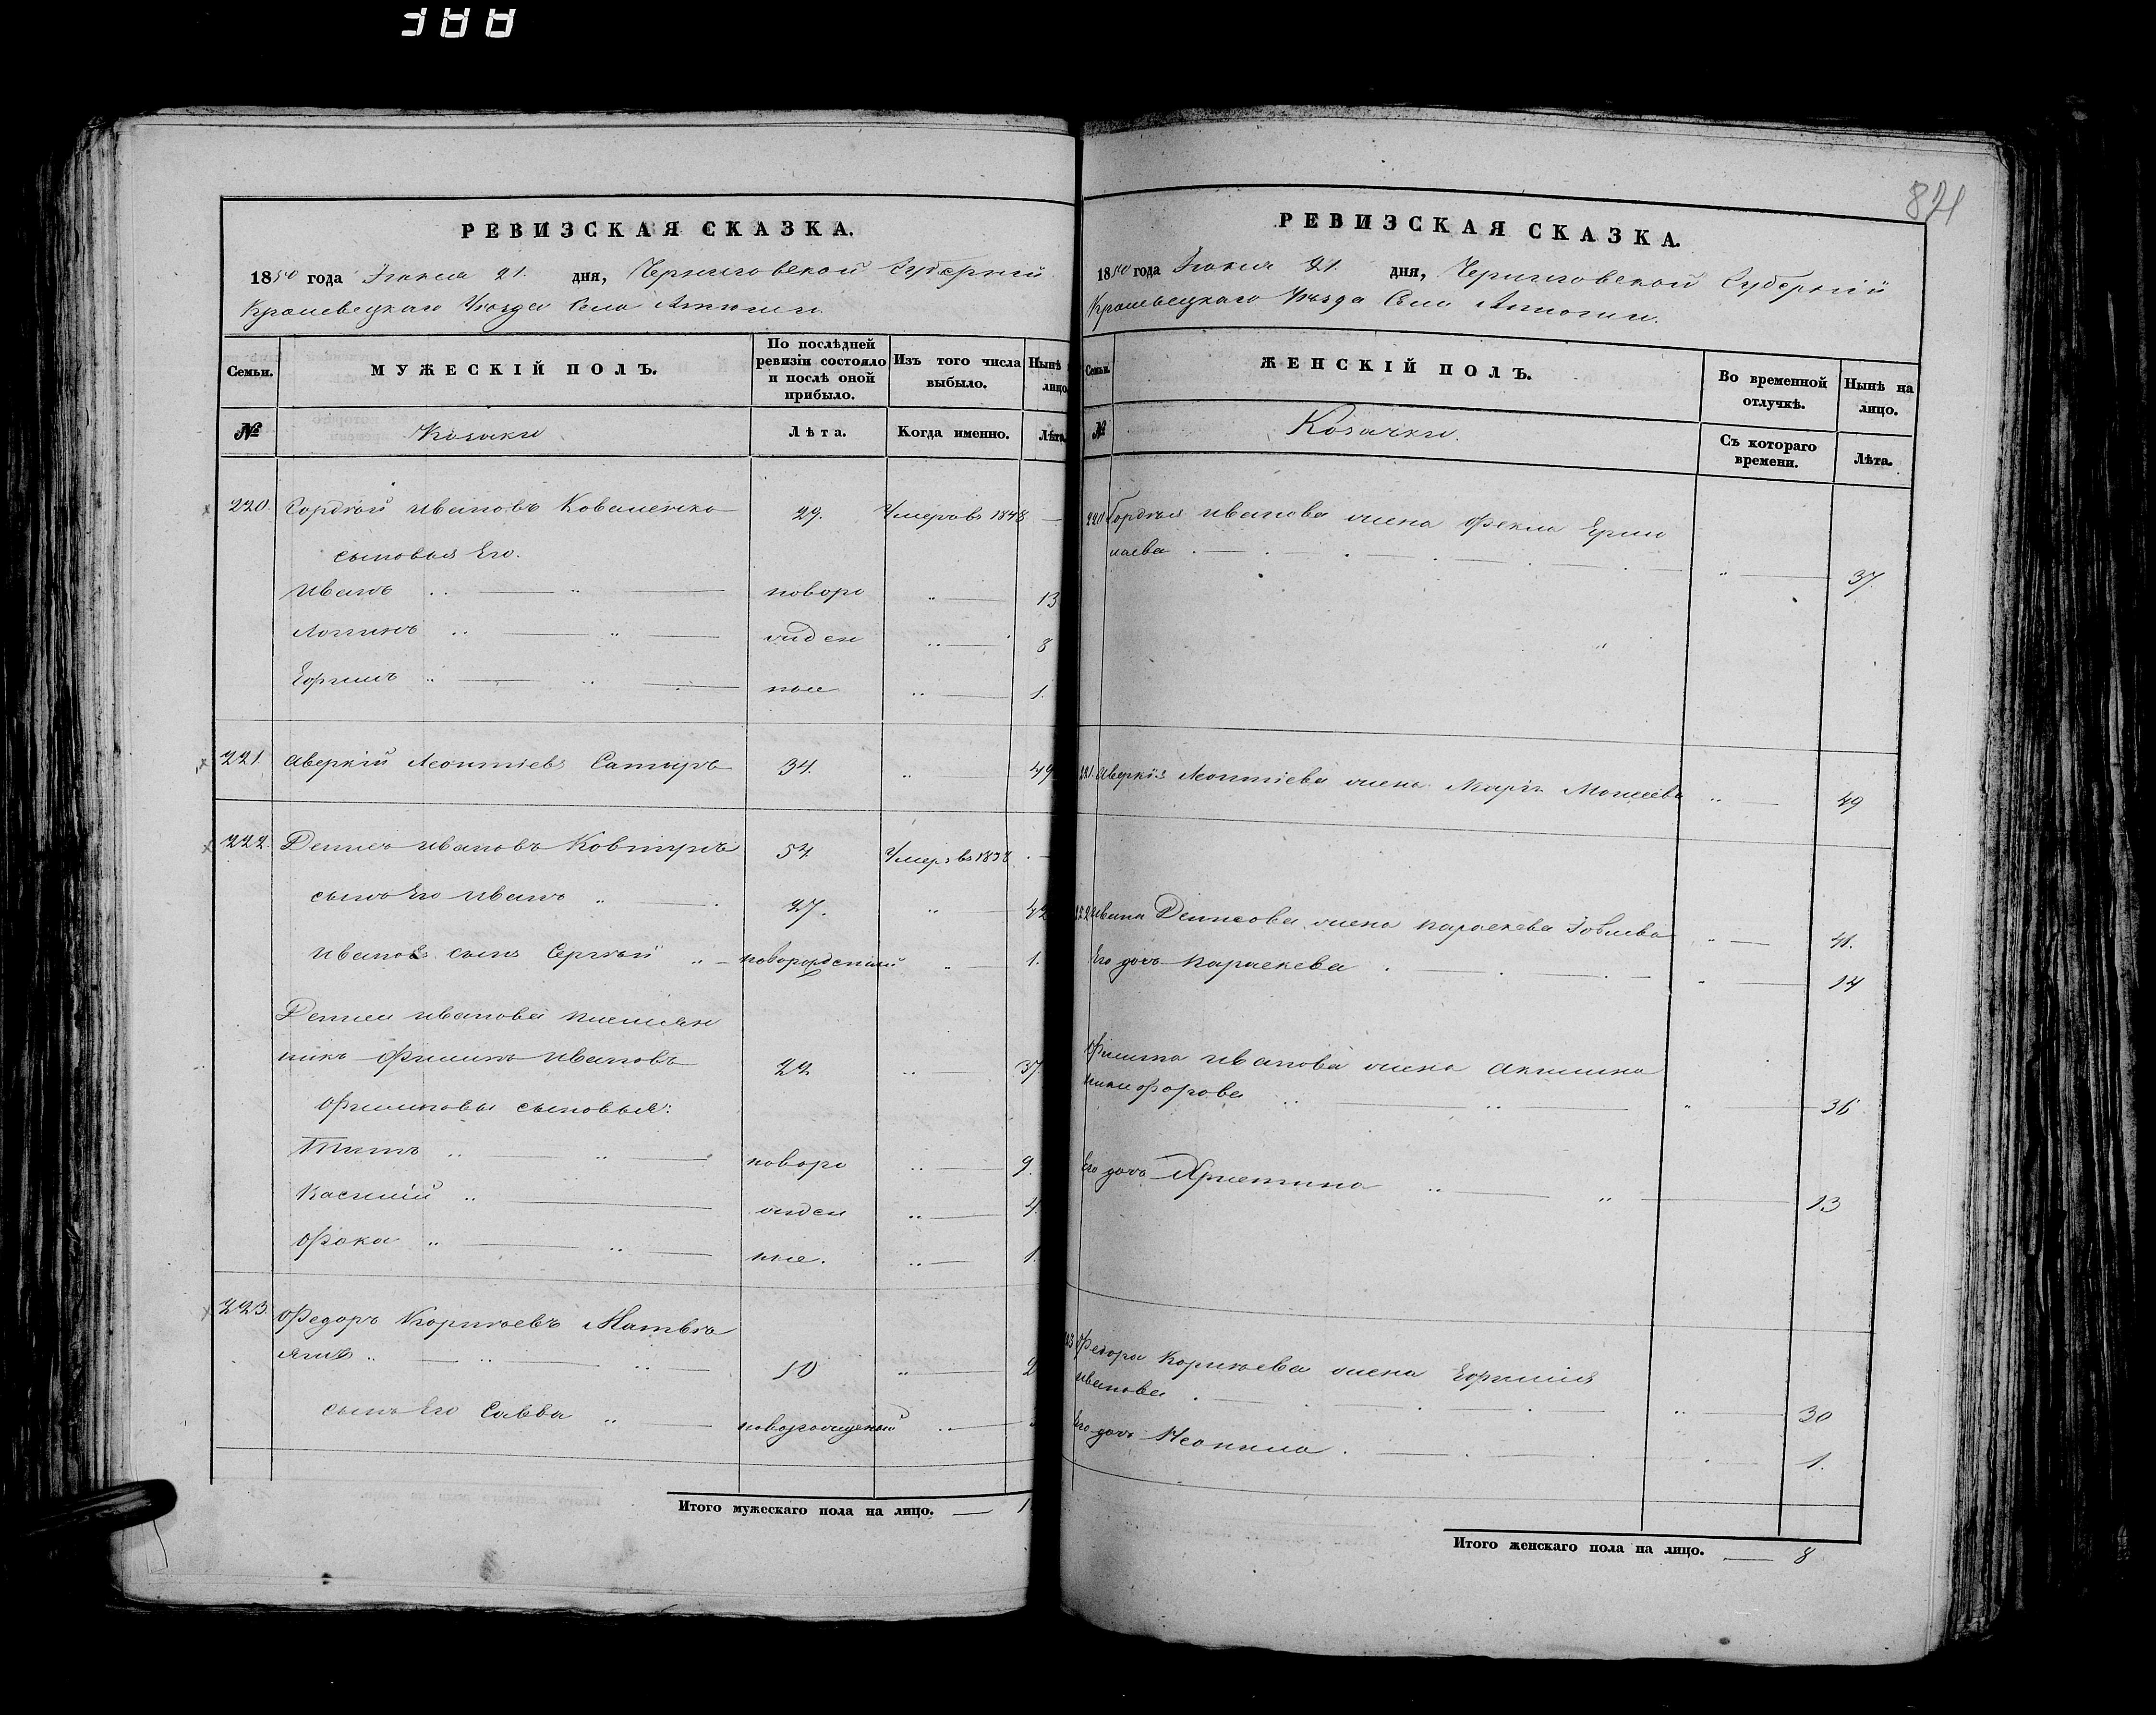 821
РЕВИЗСКАЯ СКАЗКА.
1850 года Іюня 21. дня, Черниговской Губерніи
Кролевецкаго Уѣзда Села
Семьи. МУЖЕСКІЙ ПОЛЪ. По послѣдней ревизіи состояло и послѣ оной прибыло. Изъ того числа выбыло. Нынѣ лицо
№ Козаки Лѣта. Когда именно. Лѣта
220. Гордѣй Ивановъ Коваленко 29. Умеръ въ 1848 —
сыновья Его.
Иванъ „ — „ — новоро „ — 13
Логинъ „ — „ — жден „ — 8
Ефимъ „ — „ — ные „ — 1.
221. Аверкій Леонтіевъ 34. „ 49
222. Денисъ Ивановъ Ковтунъ 54 Умеръ въ 1838 —
сынъ Его Иванъ „ — 27. „ — 42
Ивановъ сынъ Сергѣй „ — новорожденный „ — 1.
Дениса Иванова племян
никъ Филипъ Ивановъ 22 „ — 37
Филиповы сыновья:
Титъ „ — „ — новоро „ — 9.
Касіянъ „ — жден „ — 4.
Фока „ — „ — ные. „ — 1.
223. Федоръ Корнѣевъ
„ — „ — „ — 10 „ — 2
сынъ Его Савва „ — новорожденный „ —
Итого мужескаго пола на лицо. — 1
РЕВИЗСКАЯ СКАЗКА.
1850 года Іюня 21. дня, Черниговской Губерніи
Кролевецкаго Уѣзда Села
Семьи. ЖЕНСКІЙ ПОЛЪ. Во временной отлучкѣ. Нынѣ на лицо.
№ Козачки. Съ котораго времени. Лѣта.
220 Гордѣя Иванова жена Фекла Ерми
лаева — „ — 37.
221. Аверкія Леонтіева жена Марія Моисеева „ — 49
222 Ивана Денисова жена Параскева Іовлева „ — 41.
Его дочь Параскева — „ — 14
Филипа Иванова жена Акилина
Никифорова „ — „ — „ — 36
Его дочь Христина „ — „ — 13
223 Федора Корнѣева жена Ефимія
Иванова — „ — 30
Его дочь Неонила — 1.
Итого женскаго пола на лицо. — 8